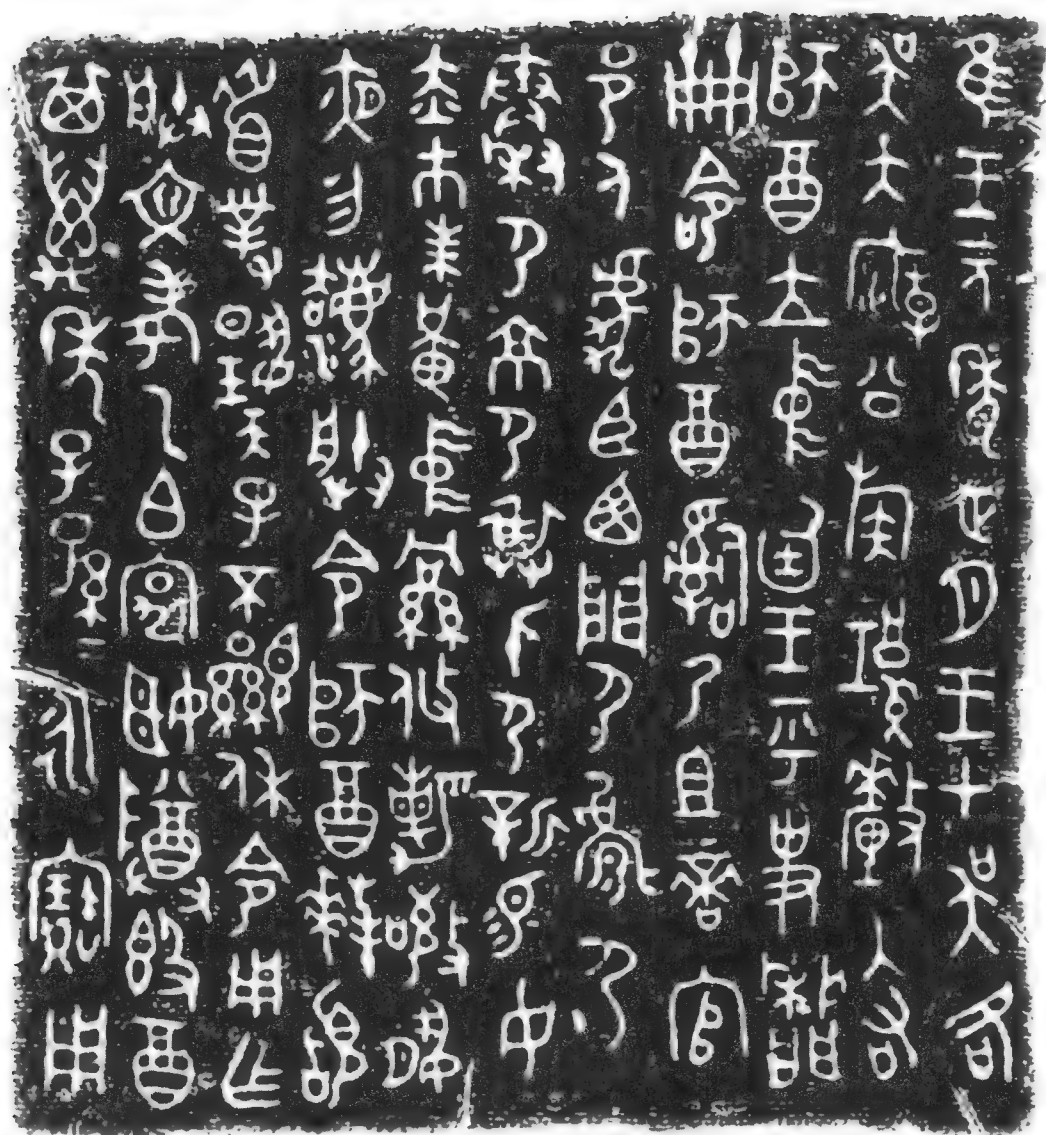 隹王元年正月王才吳各
吳大廟公族𤔲釐入右
師酉立中廷王乎史𤯍
冊命師酉嗣乃且啻官
邑人虎臣西門尸𤞷尸
秦尸京尸畀身尸新易女
赤巿朱黃中絅攸勒敬夙
夜勿灋朕令師酉拜𩒨
首對揚天子不顯休令用乍
朕文考乙白宄姬尊簋
酉其萬年子子孫孫永寶用